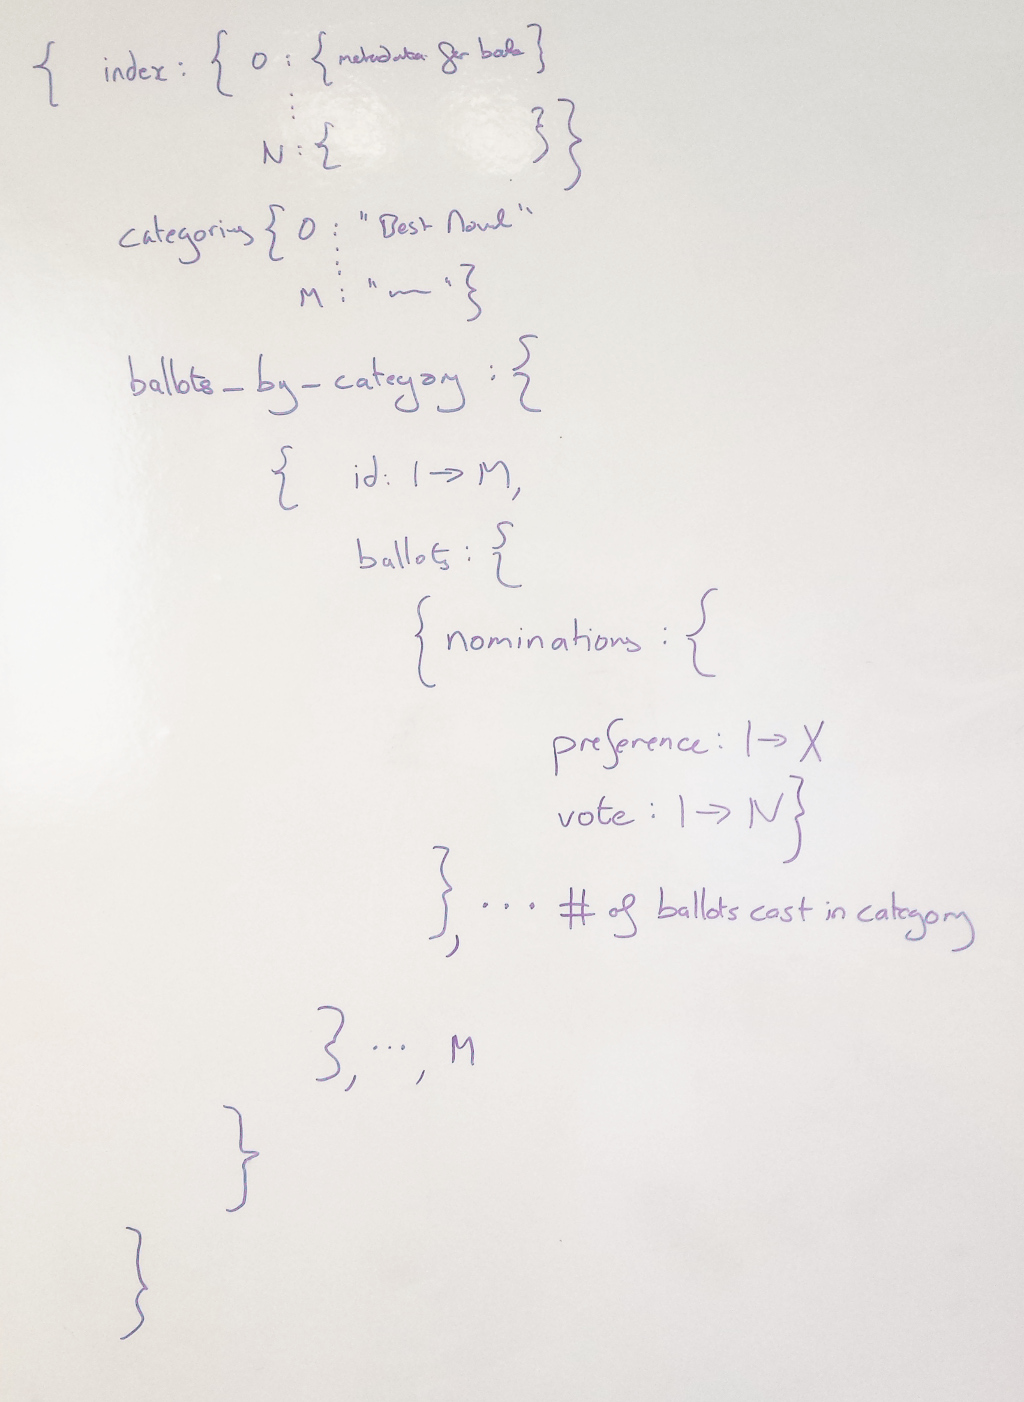 { index: { 0 : { metadata for book }
⋮
N : { } }
categories { 0 : "Best Novel"
⋮
M : "—" }
ballots_by_category : {
{ id: 1 → M,
ballots : {
{ nominations : {
preference : 1 → X
vote : 1 → N }
}, ... # of ballots cast in category
}, ..., M
}
}